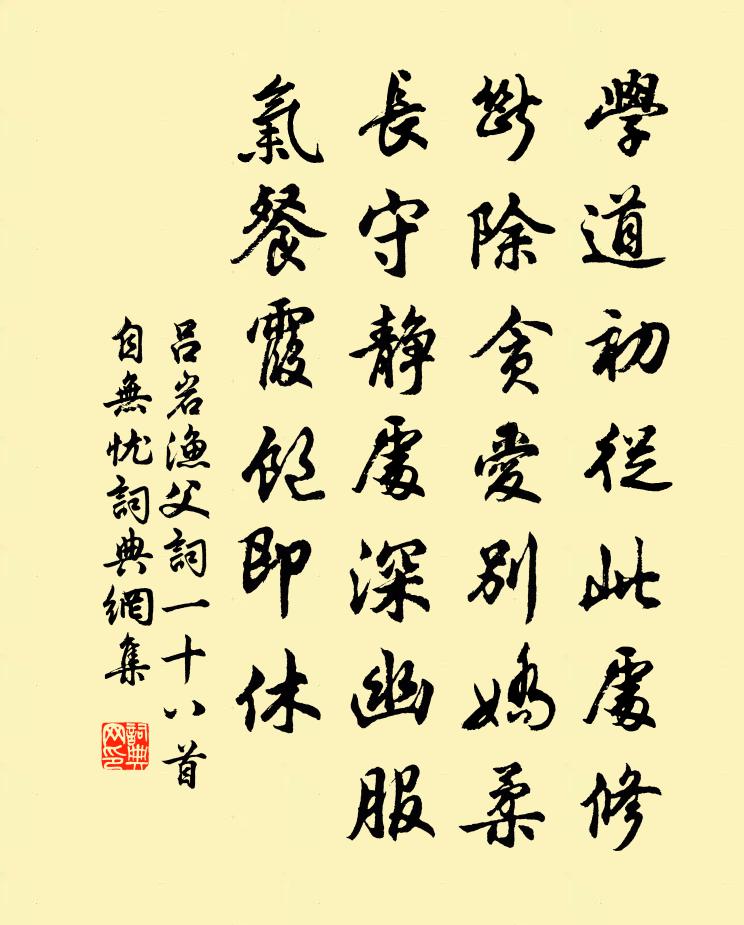 學道初從此處修
斷除貪愛別嬌柔
長守靜處深幽服
氣餐霞飽即休
呂岩漁父詞一十八首
自無忧詞典網集
詞典网印